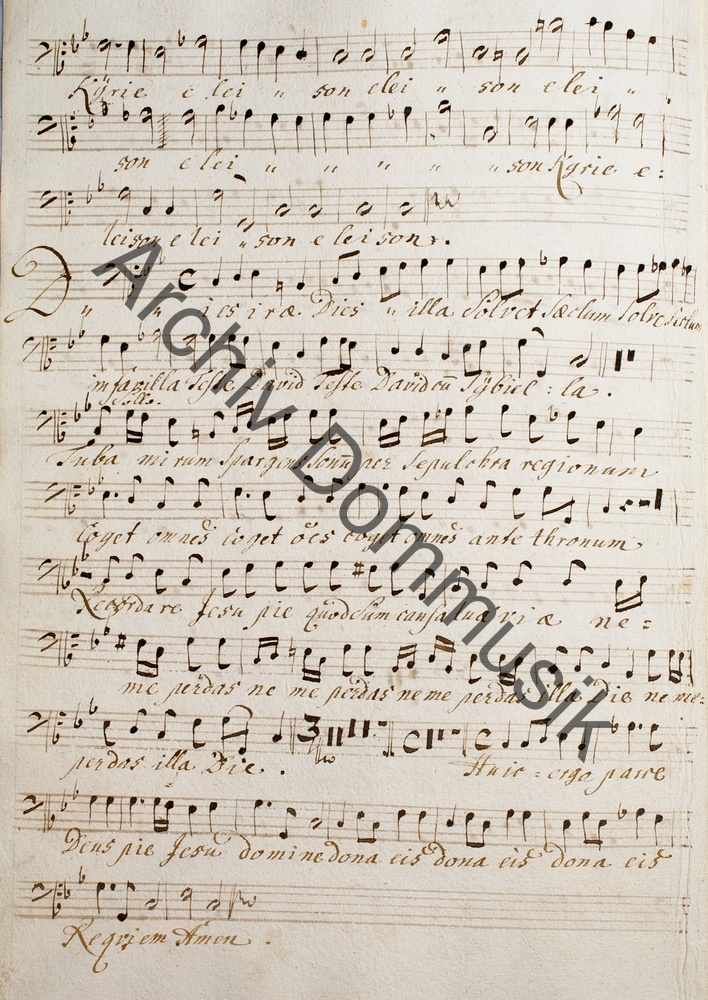 Kÿrie e lei " son e lei " son e lei "
son e lei " " " " " " son Kyrie e:
leison e lei " son e leison.
D " " ies iræ Dies " illa Solvet Sæclum Solvet Sæclum
in favilla Teste David Teste David cũ Sÿbiel : la.
Solo.
Tuba mirum Spargens Sonũ per Sepulchra regionum
Coget omnes Coget oẽs coget omnes ante thronum
Recordare Jesu pie quod Sum causa tuæ viæ ne =
me perdas ne me perdas ne me perdas illa Die ne me =
perdas illa Die. Huic = ergo parce
Deus pie Jesu domine dona eis dona eis dona eis
Requiem Amen.
Archiv Dommusik